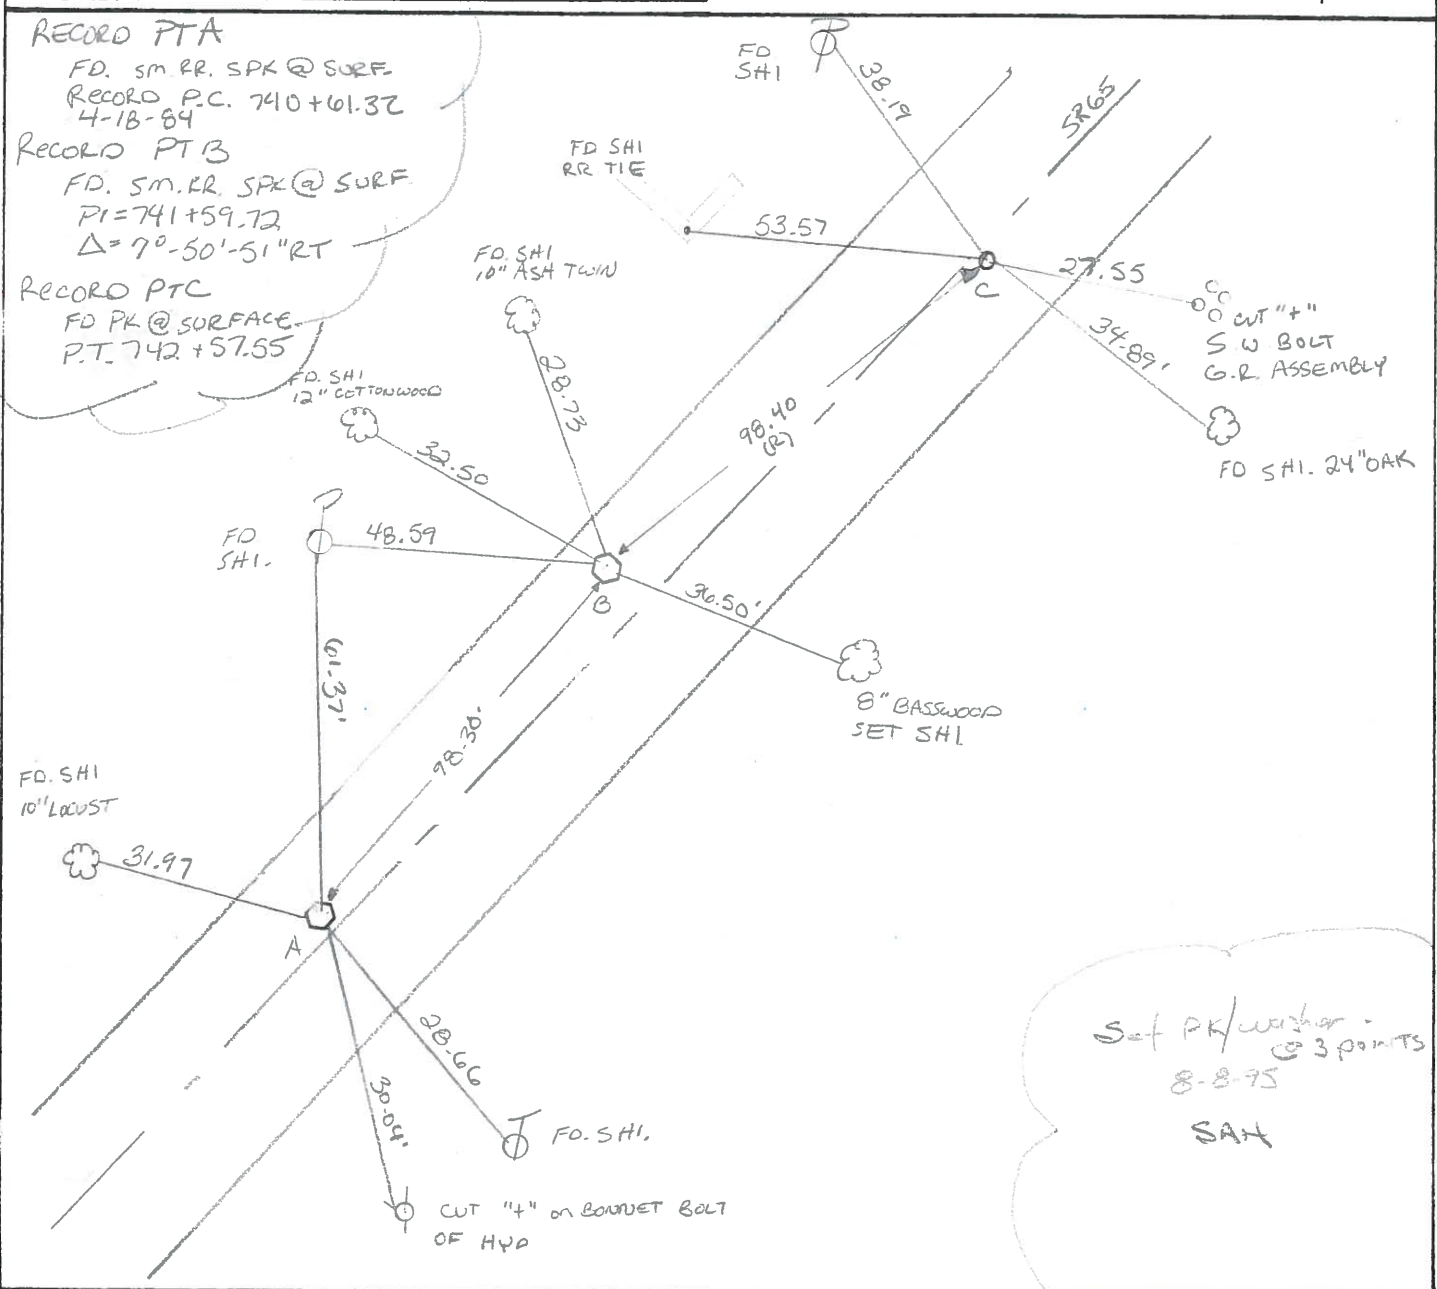 RECORD PT A
FD. SM. RR. SPK @ SURF.
RECORD P.C. 740+61.32
4-18-84
RECORD PT B
FD. SM. RR. SPK @ SURF
PI = 741+59.72
Δ = 7°-50'-51" RT
RECORD PT C
FD PK @ SURFACE
P.T. 742+57.55
FD
SHI
38.19
SR65
FD SHI
RR TIE
53.57
C
27.55
CUT "+"
S.W BOLT
G.R. ASSEMBLY
34.89'
FD SHI. 24" OAK
FD. SHI
10" ASH TWIN
28.73
FD. SHI
12" COTTONWOOD
32.50
98.40
(R)
FD
SHI.
48.59
B
36.50'
8" BASSWOOD
SET SHI.
61.37'
98.38'
FD. SHI
10" LOCUST
31.97
A
28.66
30.04'
FD. SHI.
CUT "+" on BONNET BOLT
OF HYD
Set PK/washer
@ 3 points
8-8-95
SAH